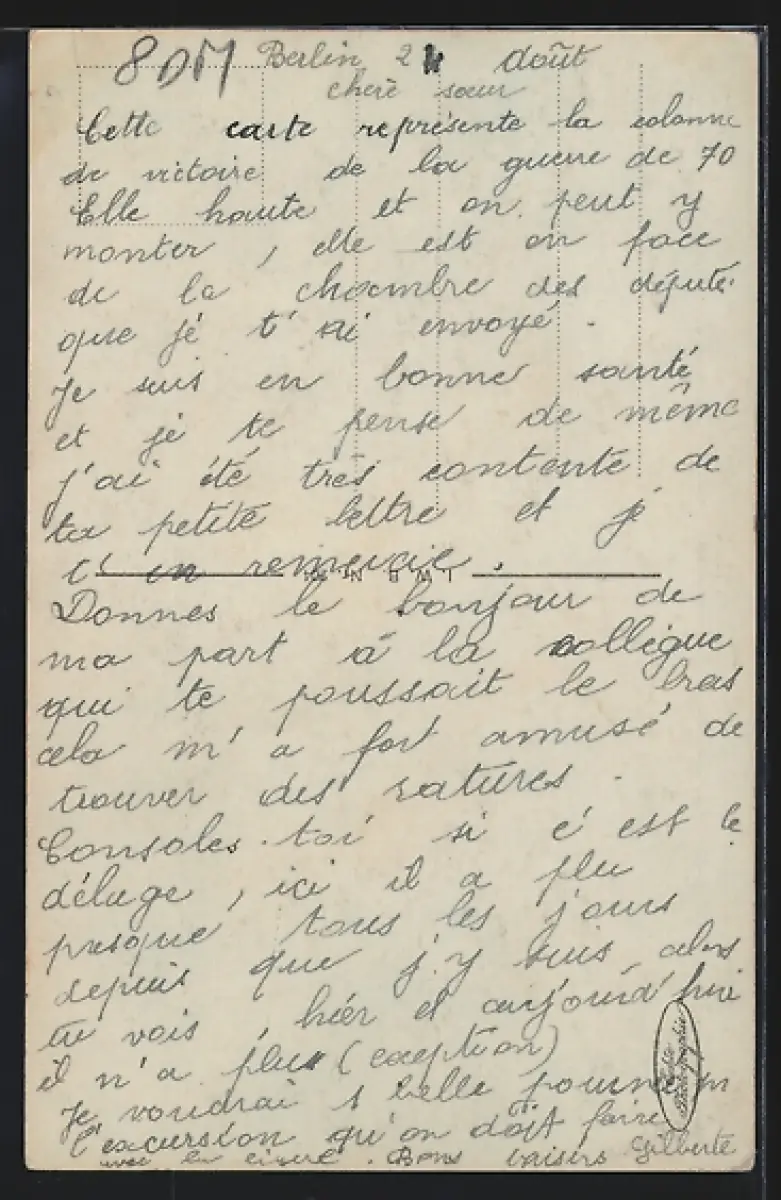 8 DM Berlin 24 Août
chère sœur
Cette carte représente la colonne
de victoire de la guerre de 70
Elle haute et on peut y
monter, elle est en face
de la chambre des députés
que je t'ai envoyé.
Je suis en bonne santé
et je te pense de même
j'ai été très contente de
ta petite lettre et je
t'en remercie.
Donnes le bonjour de
ma part à la collègue
qui te poussait le bras
cela m'a fort amusé de
trouver des ratures.
Consoles-toi si c'est le
déluge, ici il a plu
presque tous les jours
depuis que j'y suis, alors
tu vois, hier et aujourd'hui
il n'a plu (exeption)
Je voudrai 1 belle pour
l'excursion qu'on doit faire
avec . Bons baisers Gilberte
Photographie